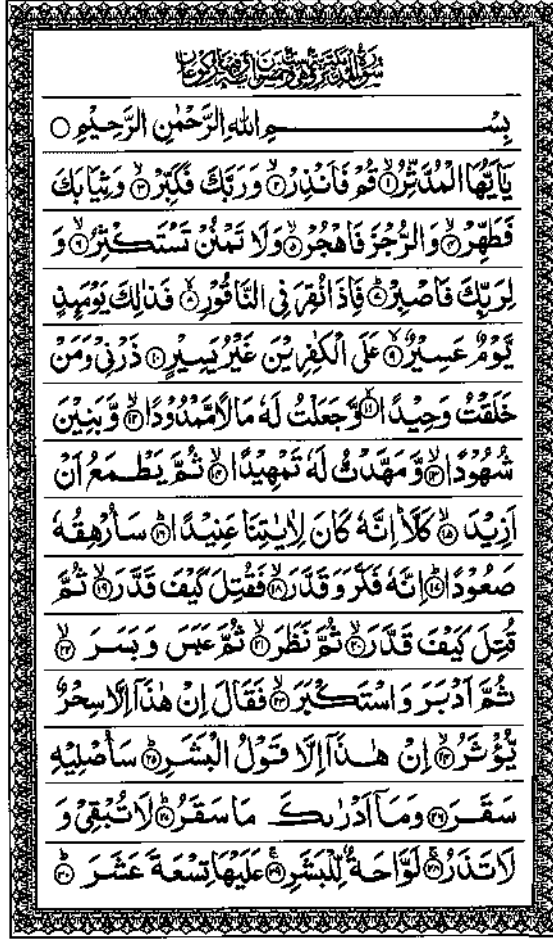 سورة المدثر مكية وهي ست وخمسون آية وفيها ركوعان
بِسْمِ اللهِ الرَّحْمٰنِ الرَّحِيْمِ ○
يٰۤاَيُّهَا الْمُدَّثِّرُ ۙ﴿۱﴾ قُمْ فَاَنْذِرْ ۙ﴿۲﴾ وَرَبَّكَ فَكَبِّرْ ۙ﴿۳﴾ وَثِيَابَكَ
فَطَهِّرْ ۙ﴿۴﴾ وَالرُّجْزَ فَاهْجُرْ ۙ﴿۵﴾ وَلَا تَمْنُنْ تَسْتَكْثِرُ ۙ﴿۶﴾ وَ
لِرَبِّكَ فَاصْبِرْ ؕ﴿۷﴾ فَاِذَا نُقِرَ فِى النَّاقُوْرِ ۙ﴿۸﴾ فَذٰلِكَ يَوْمَىِٕذٍ
يَّوْمٌ عَسِيْرٌ ۙ﴿۹﴾ عَلَى الْكٰفِرِيْنَ غَيْرُ يَسِيْرٍ ﴿۱۰﴾ ذَرْنِىْ وَمَنْ
خَلَقْتُ وَحِيْدًا ۙ﴿۱۱﴾ وَّجَعَلْتُ لَهٗ مَالًا مَّمْدُوْدًا ۙ﴿۱۲﴾ وَّبَنِيْنَ
شُهُوْدًا ۙ﴿۱۳﴾ وَّمَهَّدْتُّ لَهٗ تَمْهِيْدًا ۙ﴿۱۴﴾ ثُمَّ يَطْمَعُ اَنْ
اَزِيْدَ ۙ﴿۱۵﴾ كَلَّا ؕ اِنَّهٗ كَانَ لِاٰيٰتِنَا عَنِيْدًا ؕ﴿۱۶﴾ سَاُرْهِقُهٗ
صَعُوْدًا ؕ﴿۱۷﴾ اِنَّهٗ فَكَّرَ وَقَدَّرَ ۙ﴿۱۸﴾ فَقُتِلَ كَيْفَ قَدَّرَ ۙ﴿۱۹﴾ ثُمَّ
قُتِلَ كَيْفَ قَدَّرَ ۙ﴿۲۰﴾ ثُمَّ نَظَرَ ۙ﴿۲۱﴾ ثُمَّ عَبَسَ وَبَسَرَ ۙ﴿۲۲﴾
ثُمَّ اَدْبَرَ وَاسْتَكْبَرَ ۙ﴿۲۳﴾ فَقَالَ اِنْ هٰذَاۤ اِلَّا سِحْرٌ
يُّؤْثَرُ ۙ﴿۲۴﴾ اِنْ هٰذَاۤ اِلَّا قَوْلُ الْبَشَرِ ؕ﴿۲۵﴾ سَاُصْلِيْهِ
سَقَرَ ﴿۲۶﴾ وَمَاۤ اَدْرٰىكَ مَا سَقَرُ ؕ﴿۲۷﴾ لَا تُبْقِىْ وَ
لَا تَذَرُ ۚ﴿۲۸﴾ لَوَّاحَةٌ لِّلْبَشَرِ ۚ﴿۲۹﴾ عَلَيْهَا تِسْعَةَ عَشَرَ ؕ﴿۳۰﴾